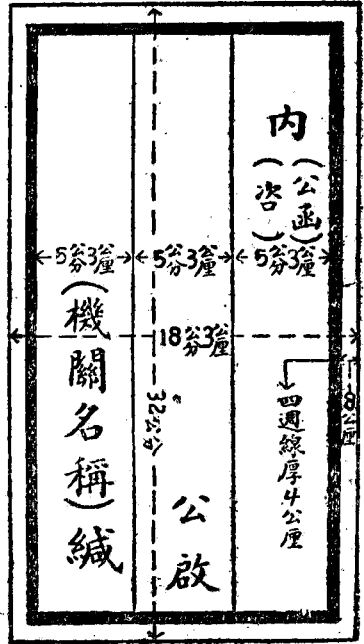 內(公函)(咨)
5公分3公厘
5公分3公厘
5公分3公厘
18公分3公厘
8公厘
四週線厚4公厘
32公分
公啟
(機關名稱)緘